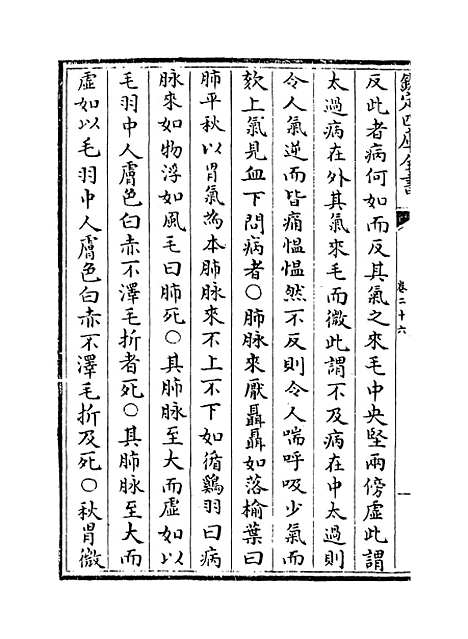 欽定四庫全書
卷二十六
反此者病何如而反其氣之來毛中央堅兩傍虛此謂
太過病在外其氣來毛而微此謂不及病在中太過則
令人氣逆而皆痛愠愠然不反則令人喘呼吸少氣而
欬上氣見血下問病者○肺脉來厭聶聶如落榆葉曰
肺平秋以胃氣為本肺脉來不上不下如循鷄羽曰病
脉來如物浮如風毛曰肺死○其肺脉至大而虛如以
毛羽中人膚色白赤不澤毛折者死○其肺脉至大而
虛如以毛羽中人膚色白赤不澤毛折及死○秋胃微